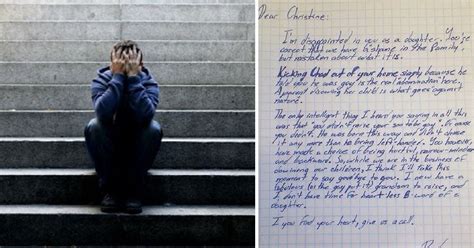 Dear Christine:
I'm disappointed in you as a daughter. You're
correct that we have a shame in the family,
but mistaken about what it is.
Kicking Chad out of your home simply because he
told you he was gay is the real abomination here.
A parent disowning her child is what goes against
nature.
The only intelligent thing I heard you saying in all this
was that "you didn't raise your son to be gay". Of course
you didn't. He was born this way and didn't choose
it any more than he being left-handed. You however
have made a choice of being hurtful, narrow-minded
and backward. So, while we are in the business of
disowning our children, I think I'll take this
moment to say goodbye to you. I now have a
fabulous (as the gay put it) grandson to raise, and
I don't have time for heart-less B-word of a
daughter.
If you find your heart, give us a call.